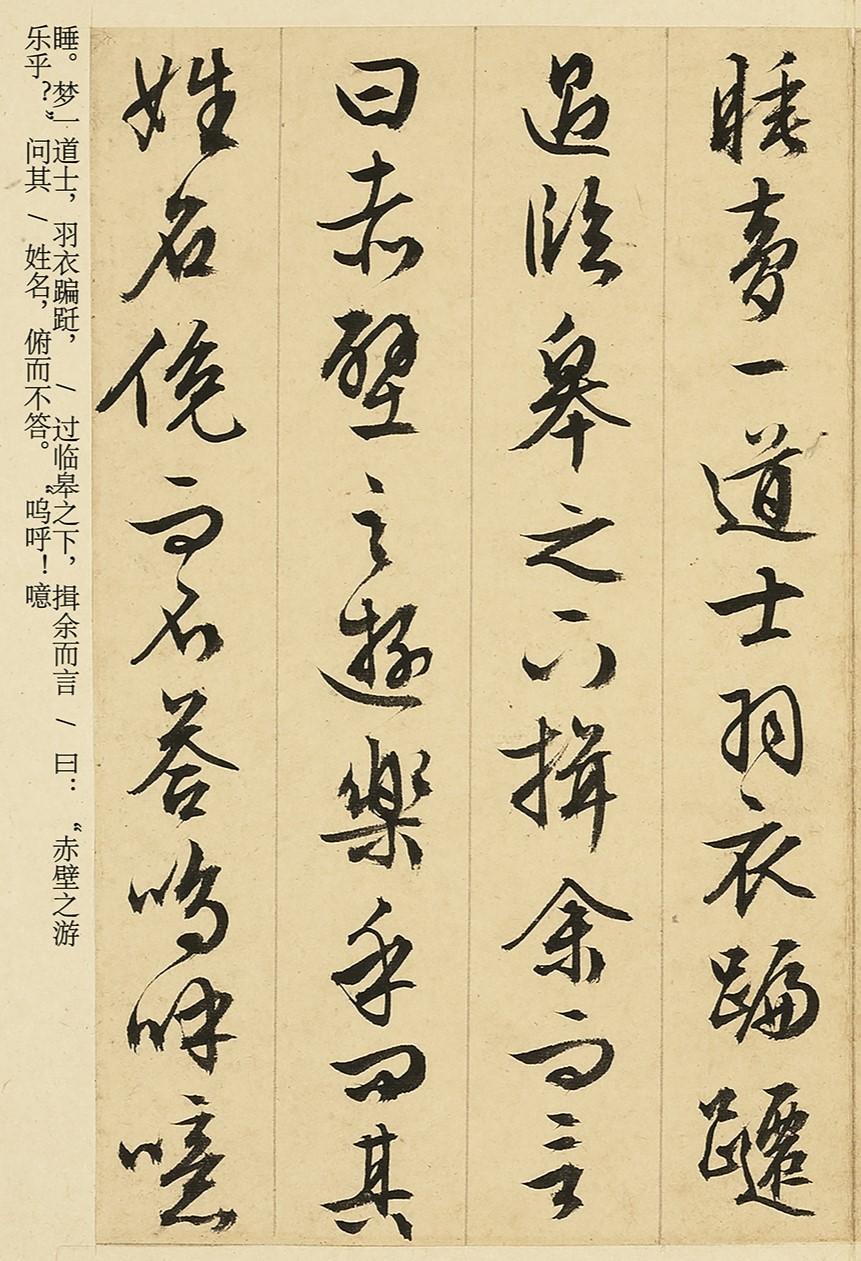 睡夢一道士羽衣蹁躚
過臨皋之下揖余而言
曰赤壁之遊樂乎問其
姓名俛而不答嗚呼噫
睡。梦一道士，羽衣蹁跹， / 过临皋之下，揖余而言 / 曰：“赤壁之游
乐乎？”问其 / 姓名，俯而不答。“呜呼！噫